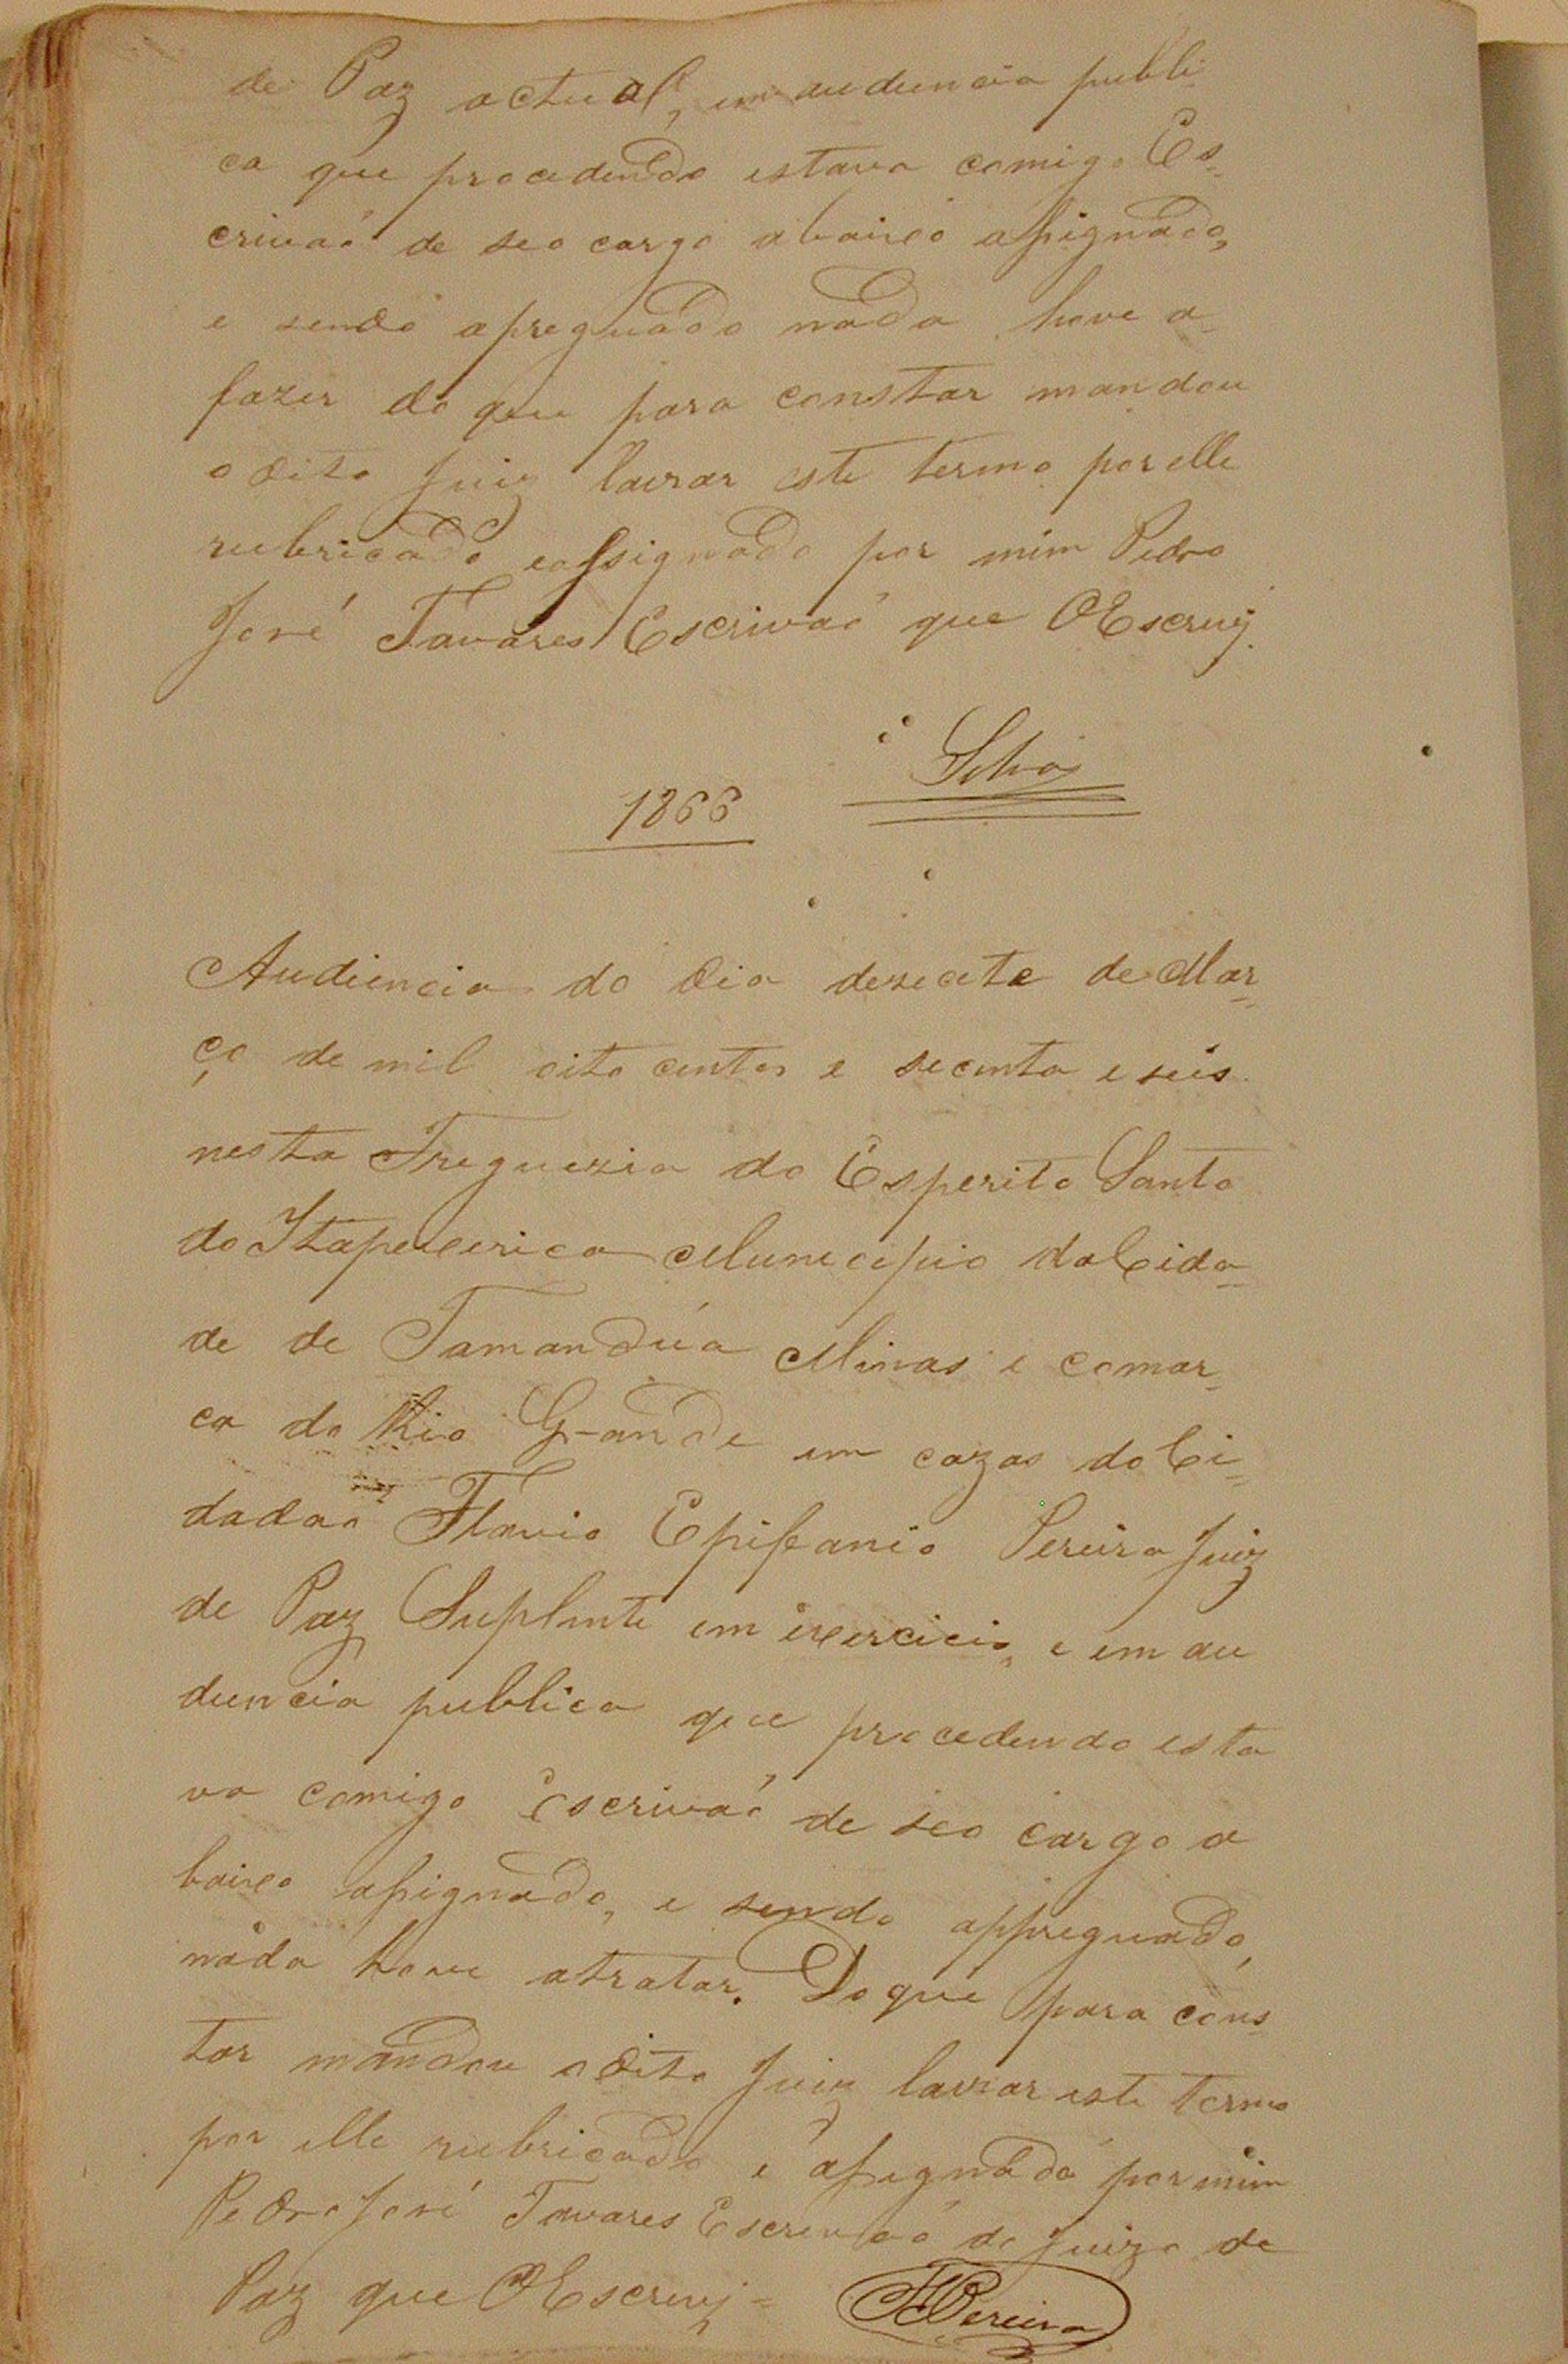 de Paz actual, em audiencia publi
ca que procedendo estava comigo Es-
crivaõ de seo cargo abaixo assignado,
e sendo apreguado nada hove a-
fazer do que para constar mandou
o dito Juiz lavrar este termo por elle
rubricado eassignado por mim Pedro
José Tavares Escrivaõ que OEscrevj.
Silva
1866
Audiencia do dia desecete de Mar-
ço de mil oito centos e secenta e seis
nesta Freguezia do Esperito Santo
do Itapecerica Municipio da Cida-
de de Tamandúa Minas e comar-
ca do Rio Grande em cazas do Ci-
dadaõ Flavio Epifanio Pereira Juiz
de Paz Suplente em exercicio, e em au
diencia publica que procedendo esta
va comigo Escrivaõ de seo cargo a
baixo assignado, e sendo appreguado,
nada hove atratar. Do que para cons
tar mandou o dito Juiz lavrar este termo
por elle rubricado e assignado por mim
Pedro José Tavares Escrivaõ do Juizo de
Paz que OEscrevj =
FEPereira